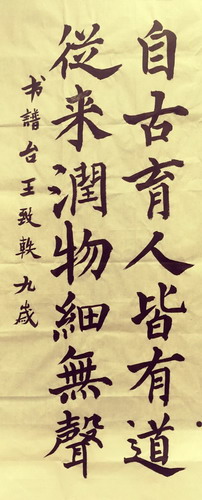 自古育人皆有道
從来潤物細無聲
书譜台王致軼九歲